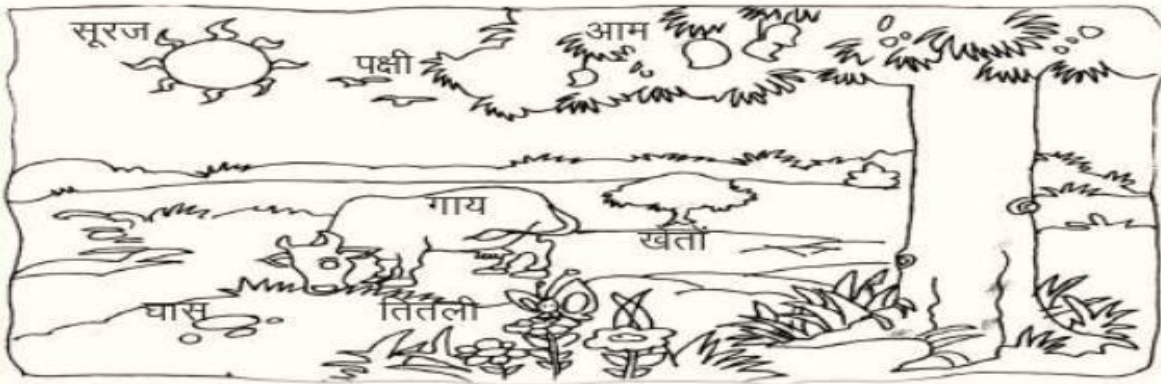 सूरज
पक्षी
आम
गाय
खेतों
घास
तितली